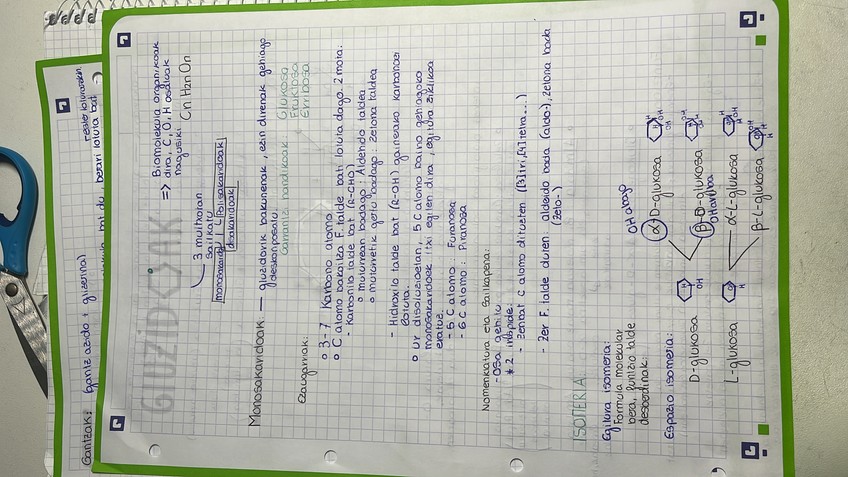 Gantzak: (gantz azido + glizerina)
GLUZIDOAK
=> Biomolekula organikoak
dira. C, O, H osatuak
nagusiki. Cn H2n On
3 multzotan
sailkatu
monosakarido
Polisakaridoak
disakaridoak
Monosakaridoak: — gluzidorik bakunenak, ezin direnak gehiago
deskonposatu.
Garrantzi handikoak
Glukosa
Fruktosa
Erribosa
Ezaugarriak:
o 3-7 Karbono atomo.
o C atomo bakoitza F. talde bati lotuta dago. 2 mota:
- Karbonilo talde bat (R-CHO)
o muturrean badago: Aldehido taldea
o muturretik gertu badago: zetona taldea
- Hidroxilo talde bat (R-OH) gaineako karbonoei
lotuta.
o Ur disoluzioetan, 5 C atomo baino gehiagoko
monosakaridoek itxi egiten dira, egitura ziklikoa
eratuz.
- 5 C atomo: Furanosa
- 6 C atomo: Piranosa
Nomenklatura eta Sailkapena:
-Osa gehitu
* 2 irizpide:
- Zenbat C atomo dituzten ([3]tri, [4]tetra...)
- Zer F. talde duten: aldehido bada (aldo-), zetona bada
(zeto-)
ISOMERIA
Egitura isomeria:
Formula molekular
bera, funtzio talde
desberdinak.
Espazio isomeria:
D-glukosa
OH
OH behera
α-D-glukosa
β-D-glukosa
L-glukosa
α-L-glukosa
β-L-glukosa